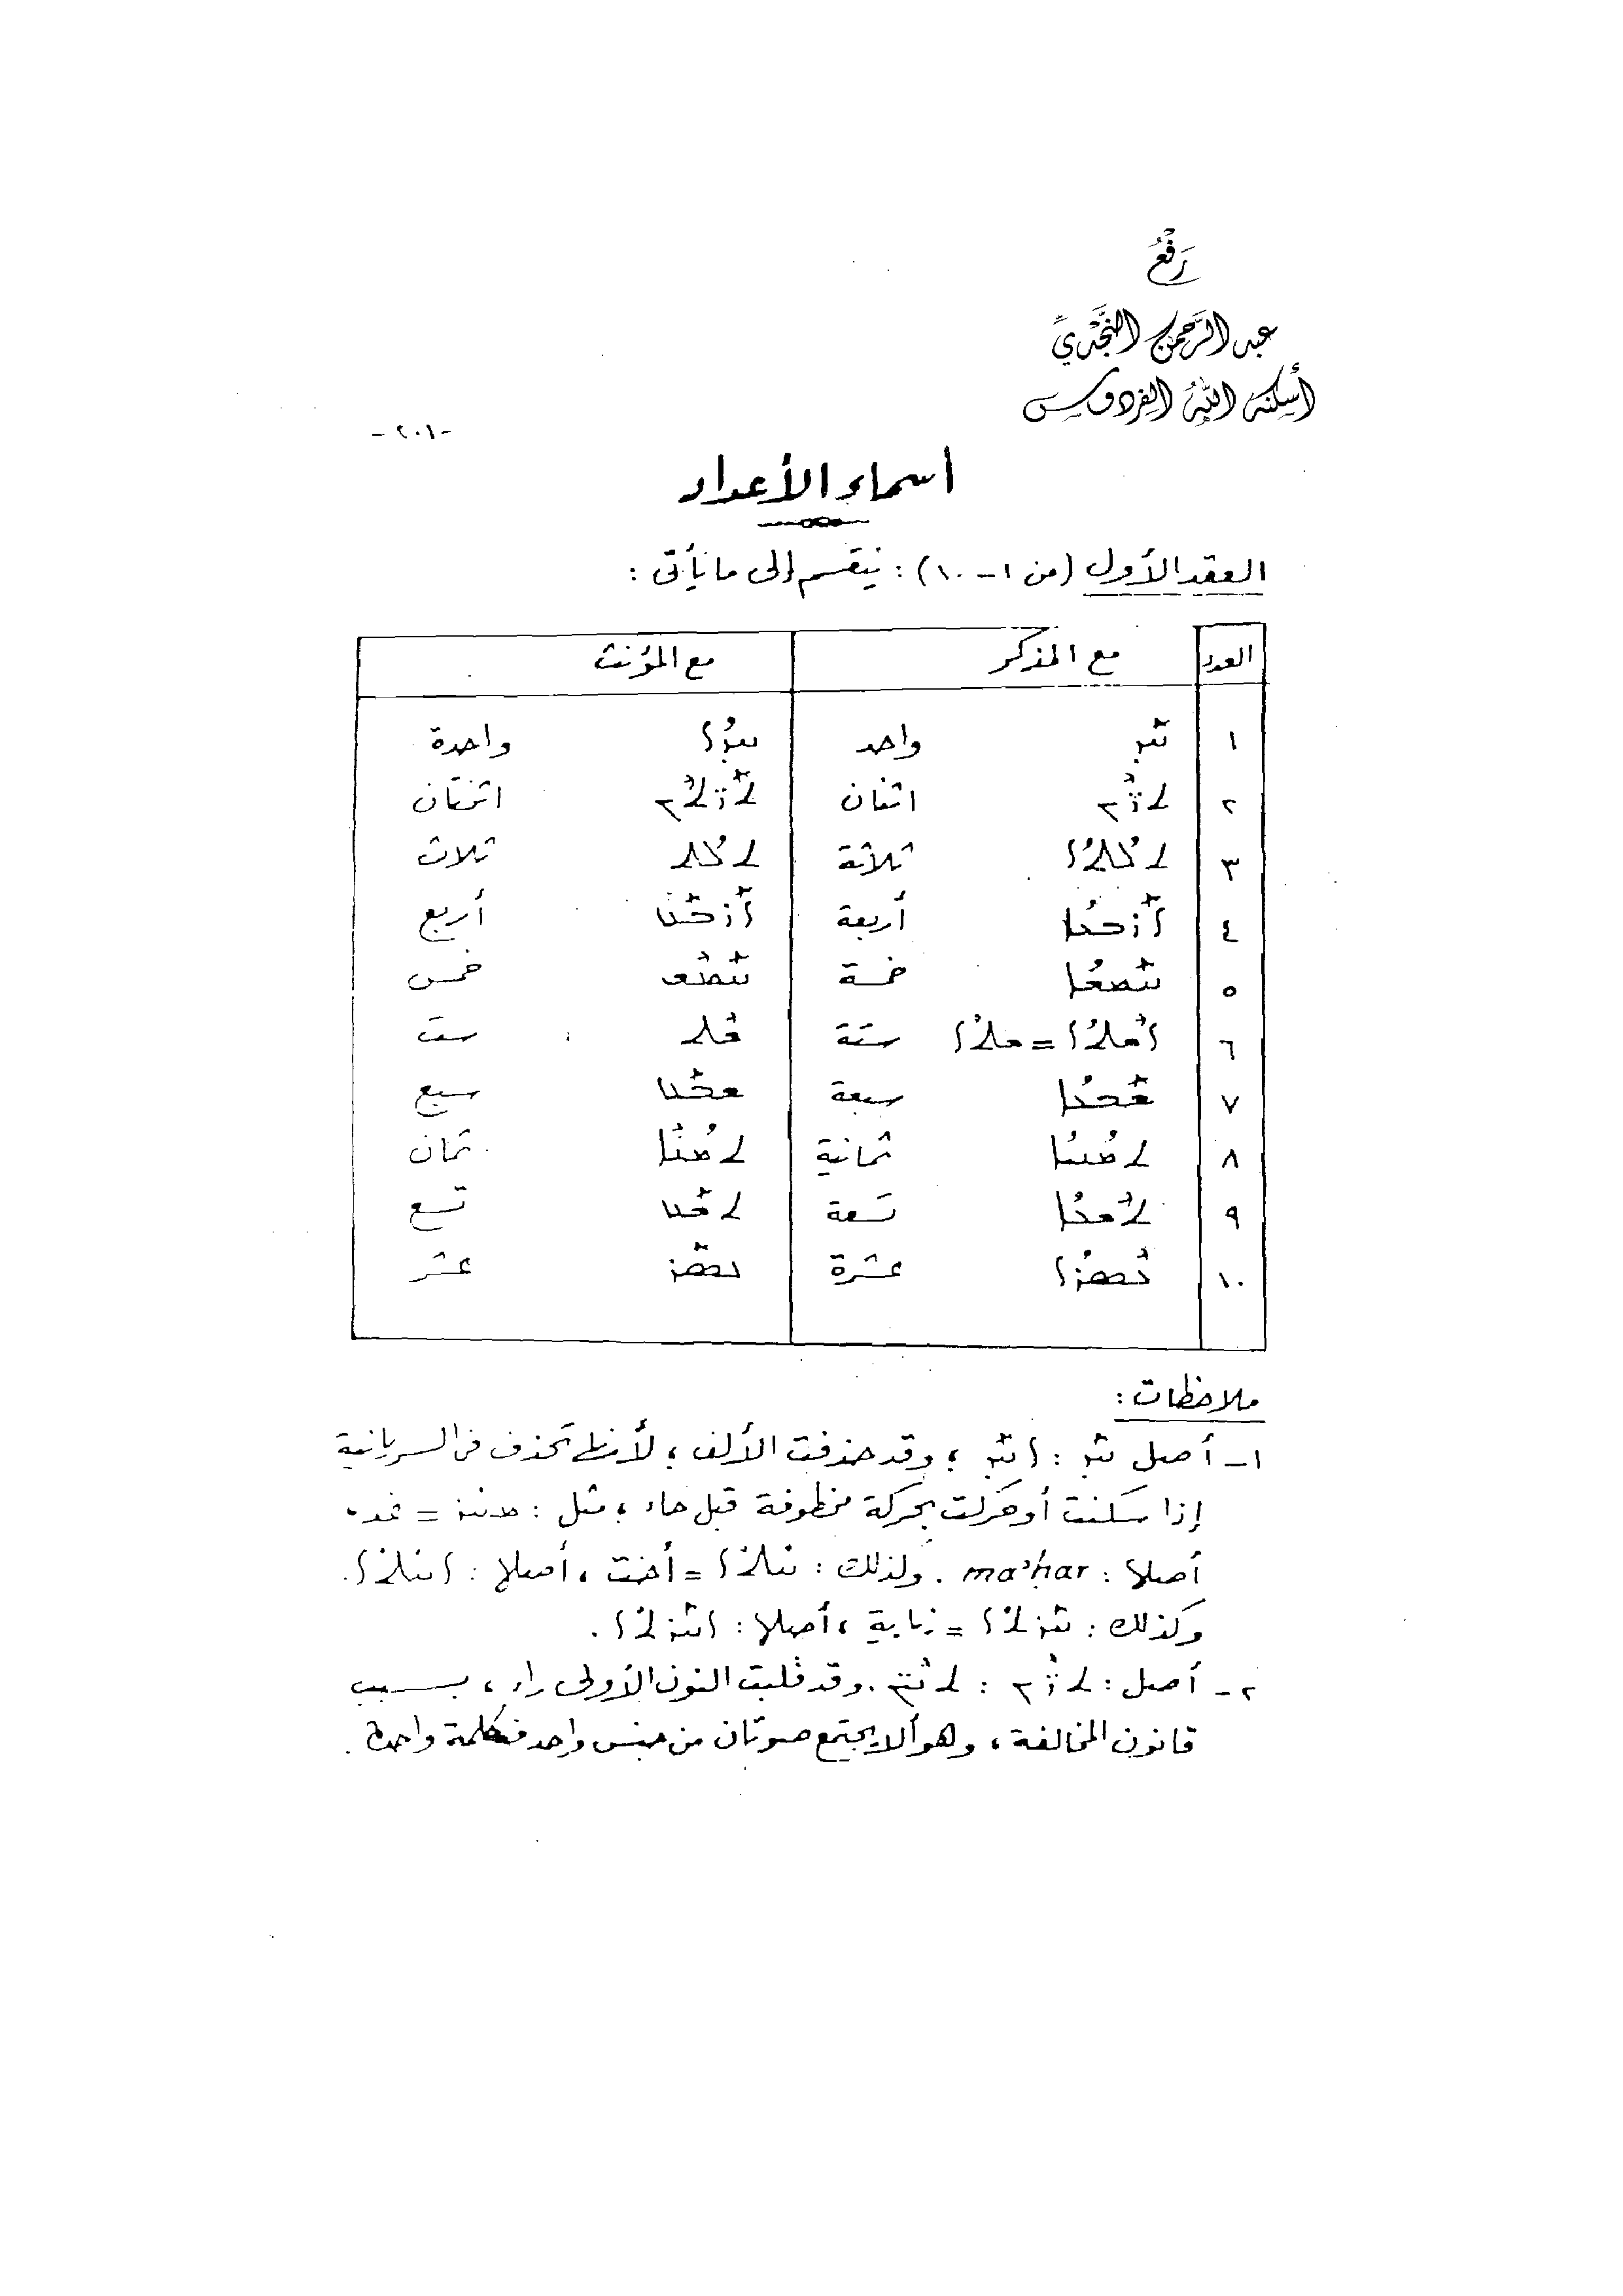 رَفْعُ
عبد الرَّحمن النَّجْديِّ
أسكنه الله الفردوس
-٢٠١-
أسماء الأعداد
العقد الأول (من ١-١٠): ينقسم إلى ما يأتى:
العدد مع المذكر مع المؤنث
١ ܚܰܕ واحد ܚܕܳܐ واحدة
٢ ܬܪܶܝܢ اثنان ܬܰܪܬܶܝܢ اثنتان
٣ ܬܠܳܬܳܐ ثلاثة ܬܠܳܬ ثلاث
٤ ܐܰܪܒܥܳܐ أربعة ܐܰܪܒܰܥ أربع
٥ ܚܰܡܫܳܐ خمسة ܚܰܡܶܫ خمس
٦ ܐܶܫܬܳܐ = ܫܬܳܐ ستة ܫܶܬ ست
٧ ܫܰܒܥܳܐ سبعة ܫܒܰܥ سبع
٨ ܬܡܳܢܝܳܐ ثمانية ܬܡܳܢܶܐ ثمان
٩ ܬܶܫܥܳܐ تسعة ܬܫܰܥ تسع
١٠ ܥܶܣܪܳܐ عشرة ܥܣܰܪ عشر
ملاحظات:
١- أصل ܚܰܕ : ܐܚܰܕ ؛ وقد حذفت الألف ؛ لأنها تحذف فى السريانية
إذا سكنت أو حركت بحركة مخطوفة قبل حاء ؛ مثل : ܡܚܪ = غد ،
أصلها : ma'ḥar . ولذلك : ܚܬܐ = أخت ، أصلها : ܐܚܬܐ .
وكذلك : ܚܪܬܐ = نهاية ، أصلها : ܐܚܪܬܐ .
٢- أصل : ܬܪܶܝܢ : ܬܢܶܝܢ . وقد قلبت النون الأولى راء ، بسبب
قانون المخالفة ، وهو ألا يجتمع صوتان من جنس واحد فى كلمة واحدة .